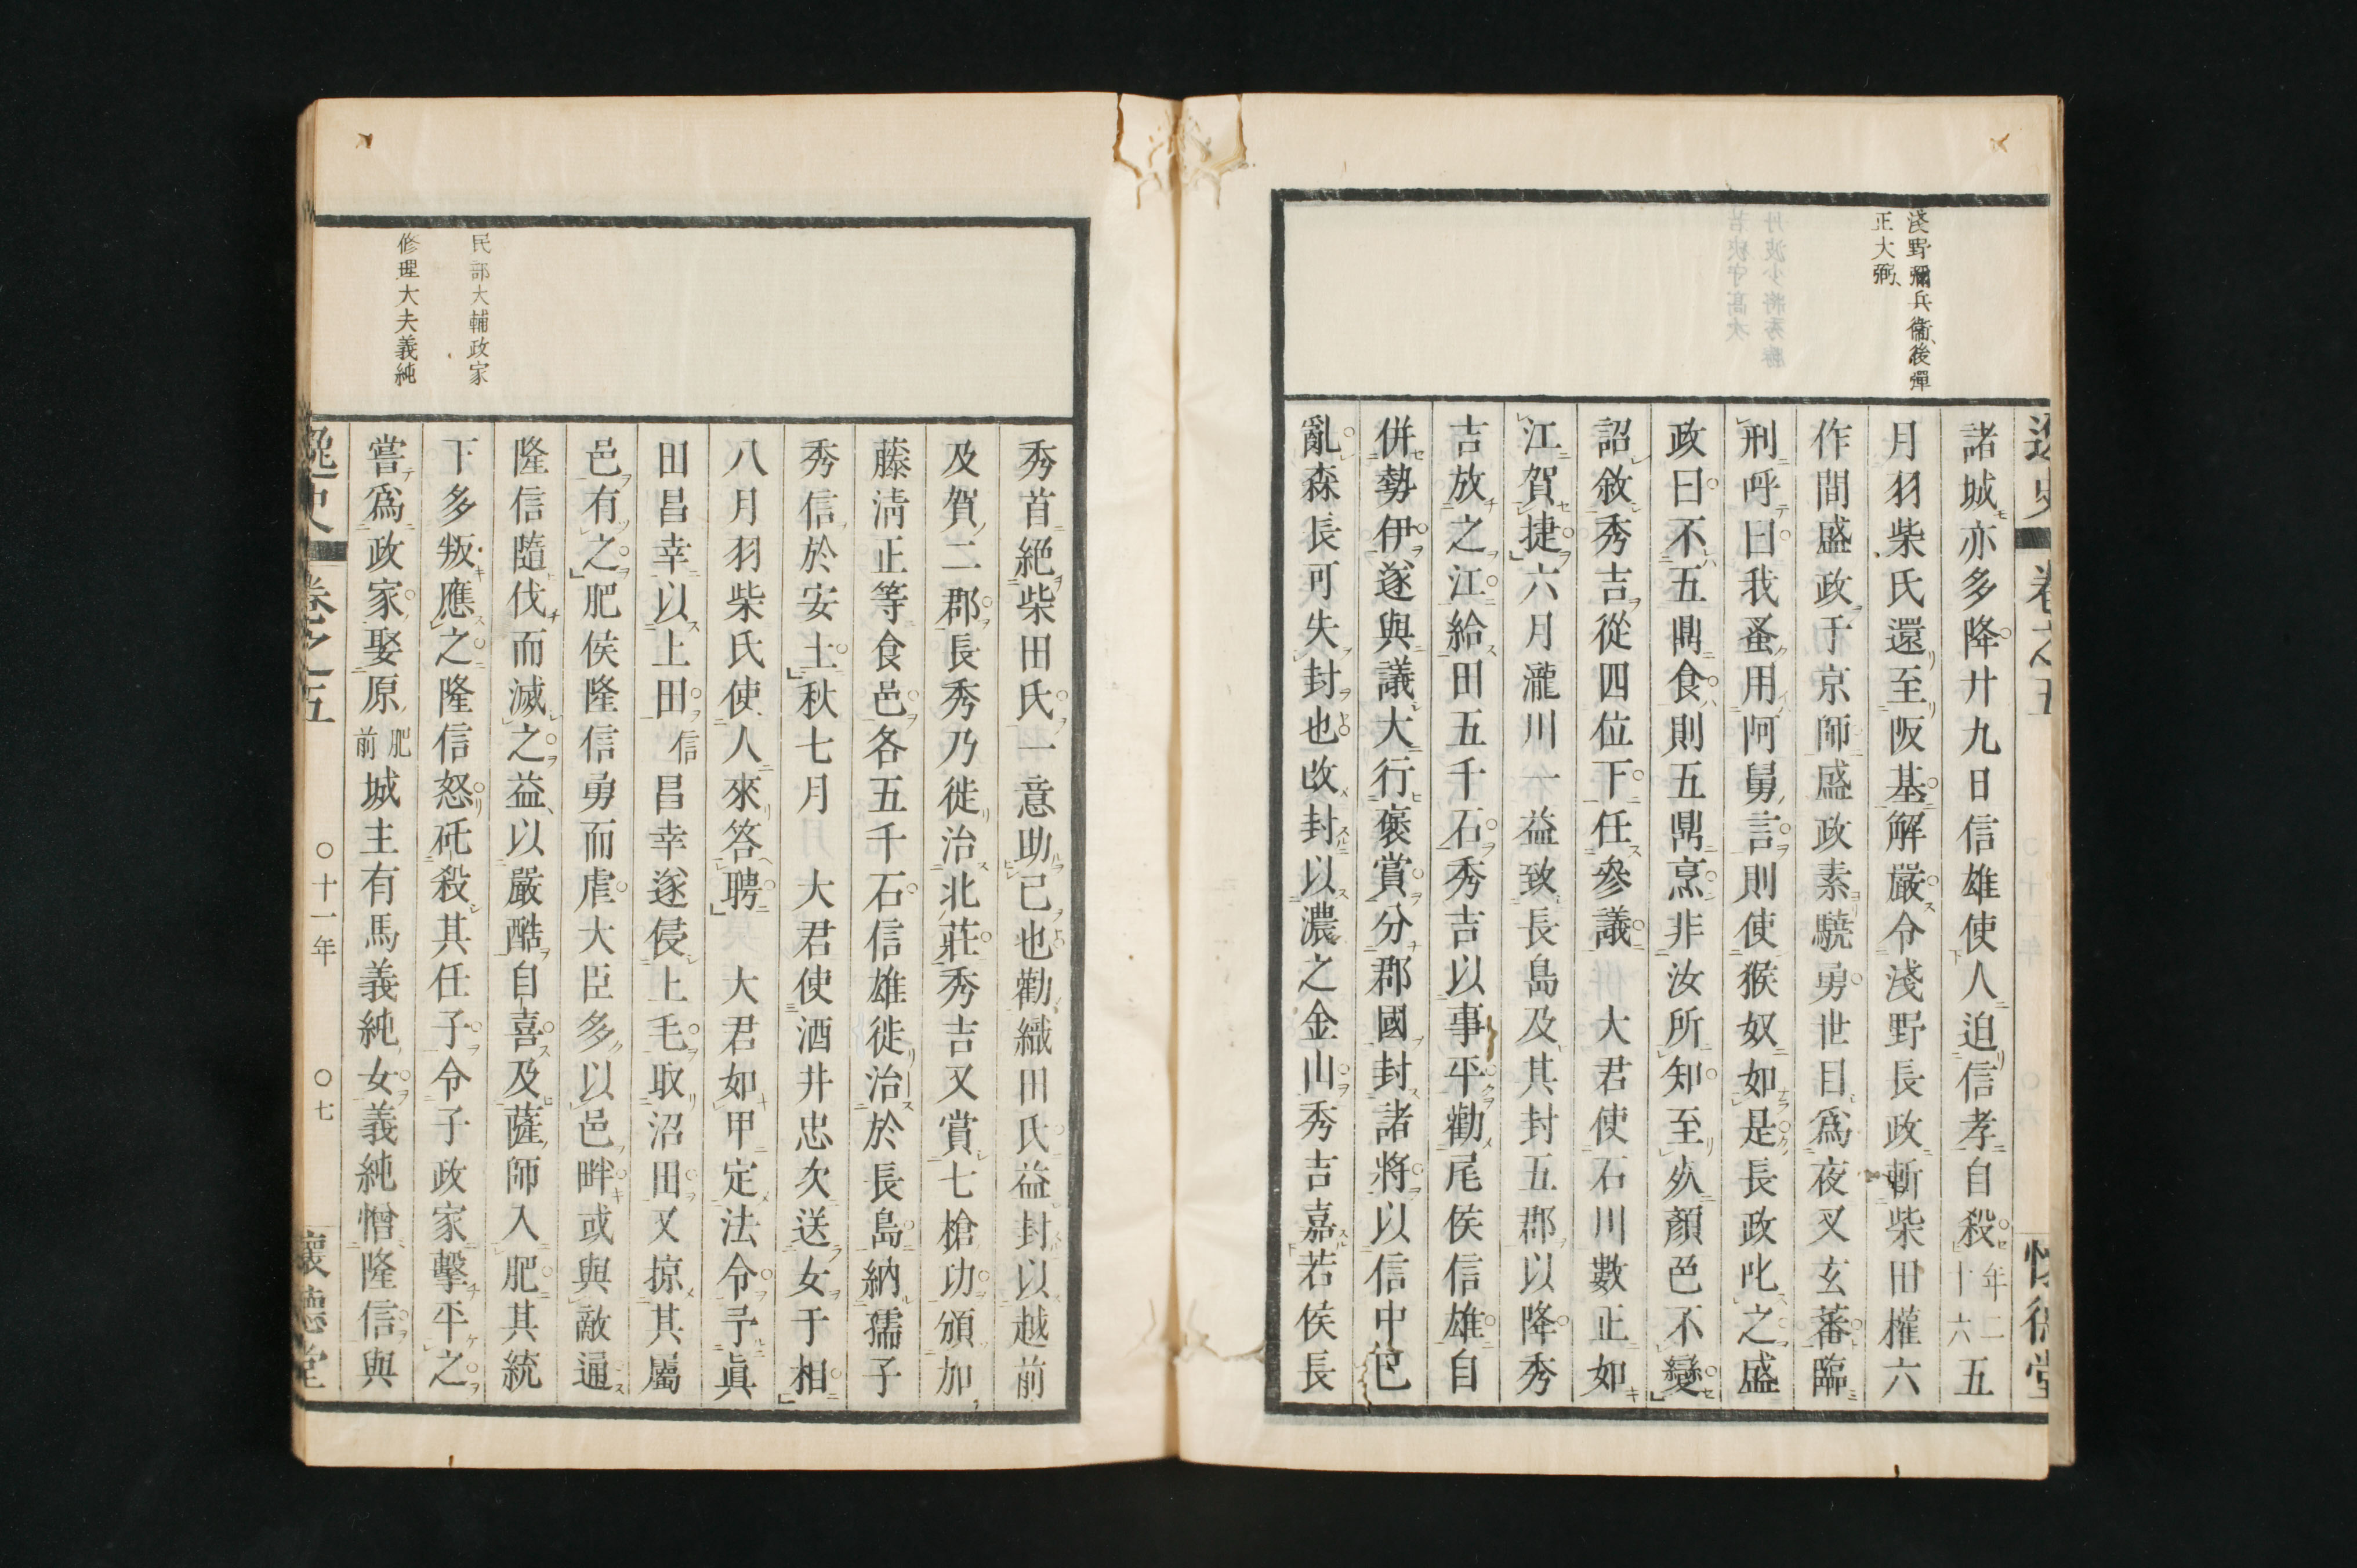 逸史 卷之五 懷德堂
淺野彌兵衞後彈
正大弼
諸城亦多降廿九日信雄使人迫信孝自殺年二十六五
月羽柴氏還至阪基解嚴令淺野長政斬柴田權六
作間盛政于京師盛政素驍勇世目爲夜叉玄蕃臨
刑呼曰我蚤用阿舅言則使猴奴如是長政叱之盛
政曰不五鼎食則五鼎烹非汝所知至死顏色不變
詔敘秀吉從四位下任參議　大君使石川數正如
江賀捷六月瀧川一益致長島及其封五郡以降秀
吉放之江給田五千石秀吉以事平勸尾侯信雄自
併勢伊遂與議大行褒賞分郡國封諸將以信中已
亂森長可失封也改封以濃之金山秀吉嘉若侯長
秀首絕柴田氏一意助已也勸織田氏益封以越前
及賀二郡長秀乃徙治北莊秀吉又賞七槍功頒加
藤淸正等食邑各五千石信雄徙治於長島納孺子
秀信於安土秋七月　大君使酒井忠次送女于相
八月羽柴氏使人來答聘　大君如甲定法令予眞
田昌幸以上田信昌幸遂侵上毛取沼田又掠其屬
邑有之肥侯隆信勇而虐大臣多以邑畔或與敵通
隆信隨伐而滅之益以嚴酷自喜及薩師入肥其統
下多叛應之隆信怒砥殺其任子令子政家擊平之
嘗爲政家娶原肥前城主有馬義純女義純憎隆信與
民部大輔政家
修理大夫義純
逸史 卷之五 〇十一年 〇七 懷德堂